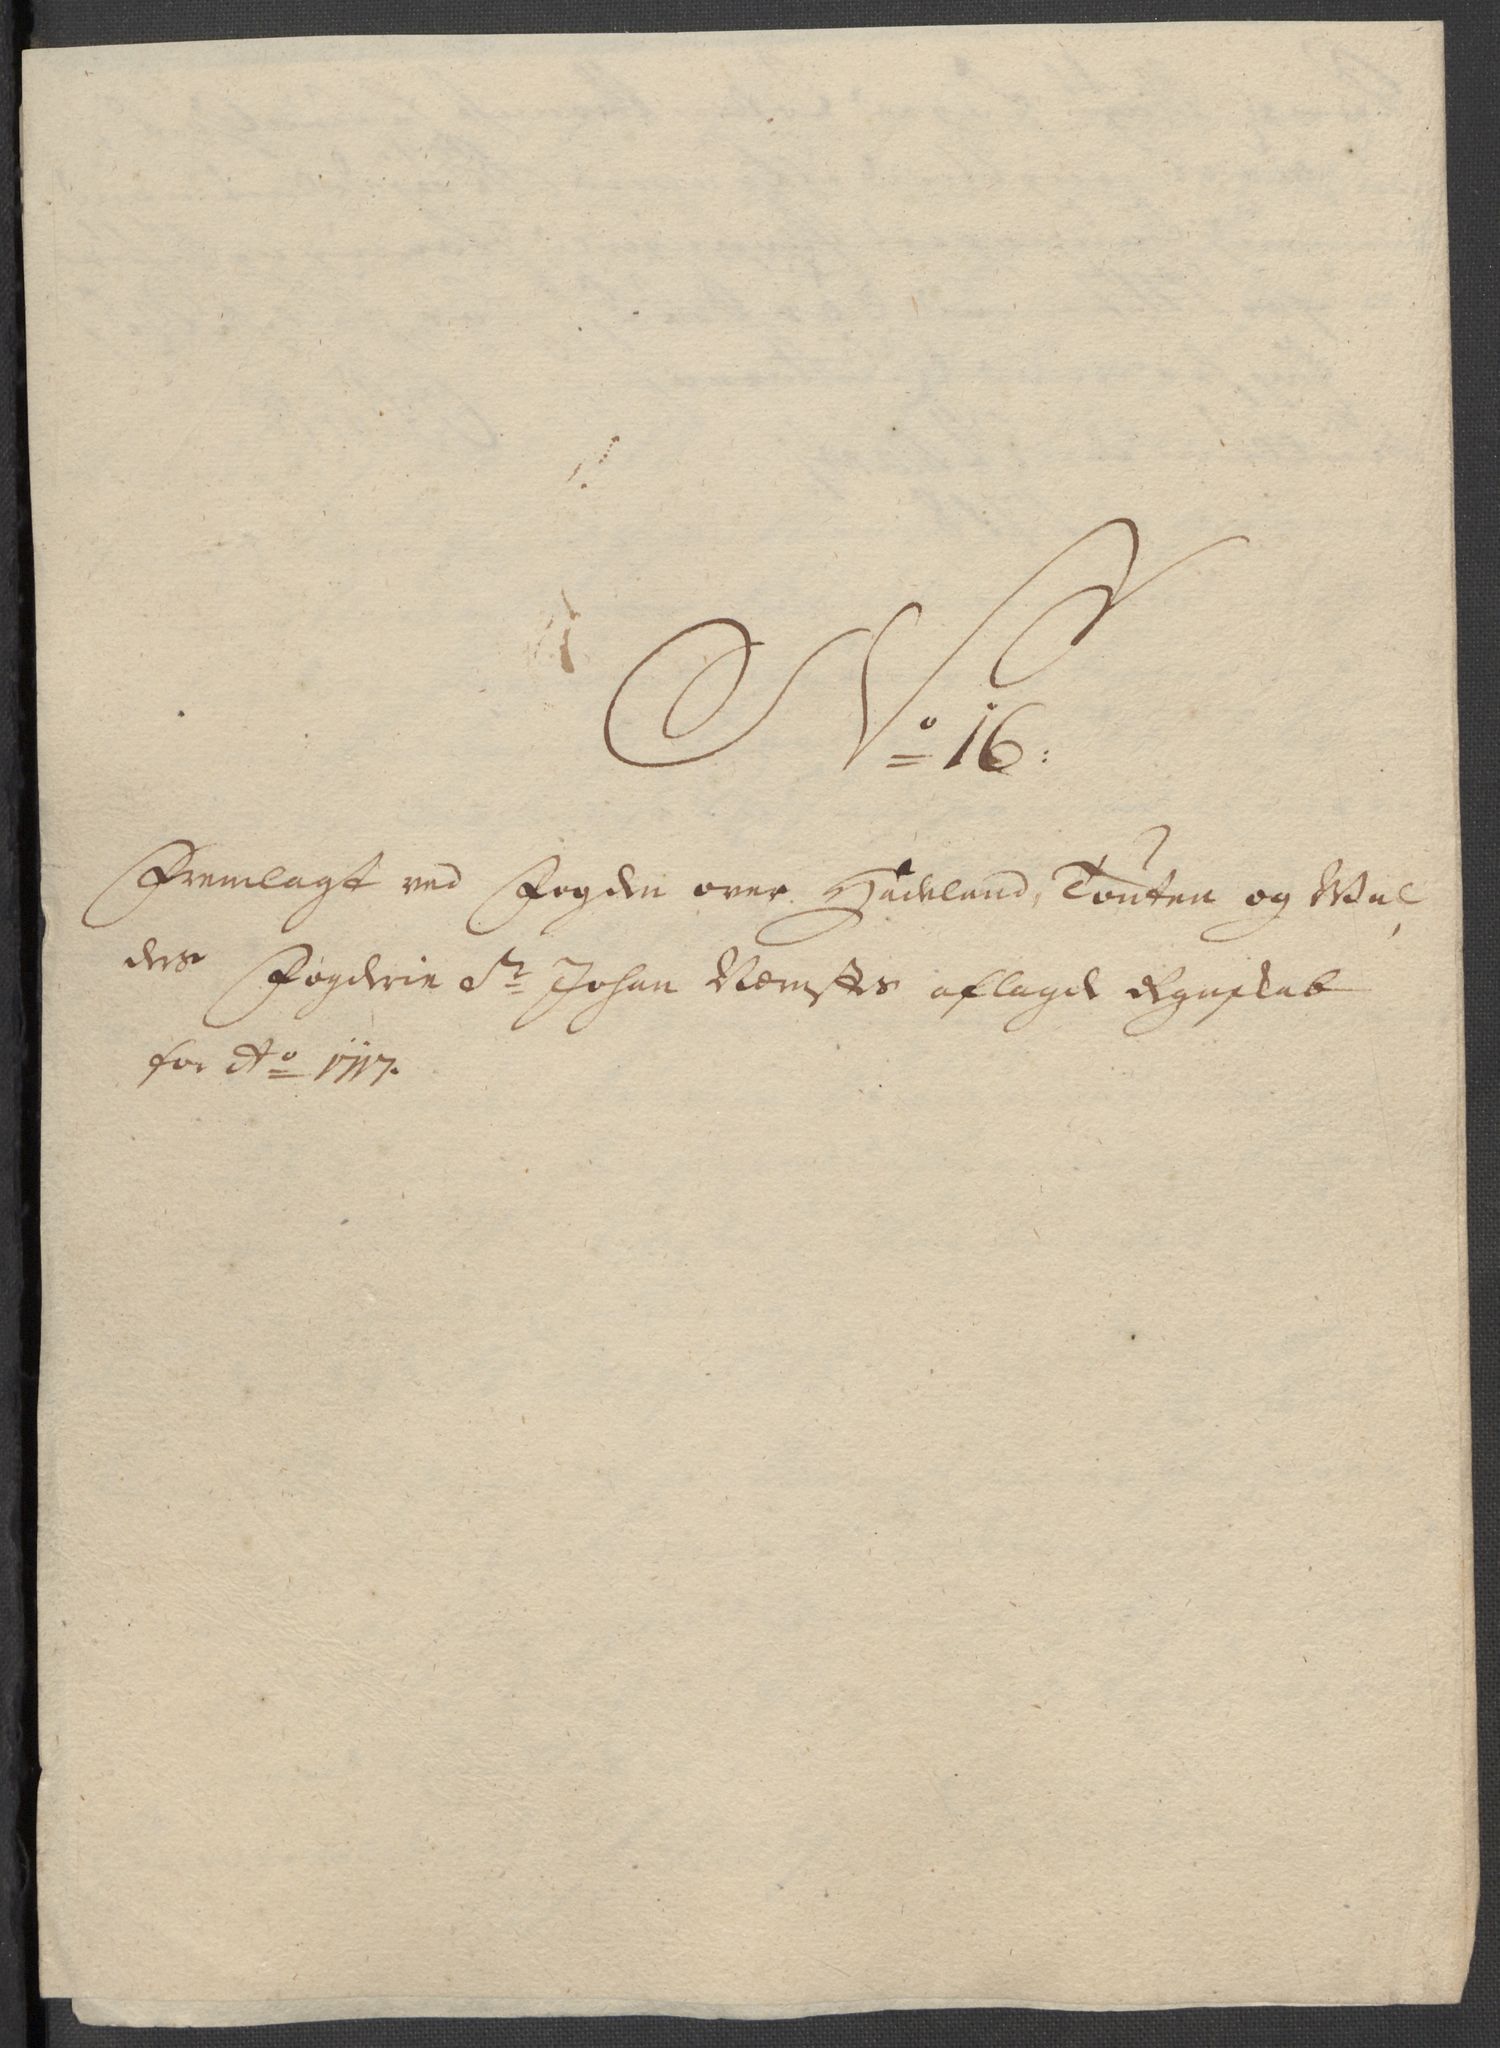 No 16:
Fremlagt ved Fogden over Hadeland, Toten og Wal
ders Fogderie Sr Johan aflagde Regnskab
for Ao 1717.